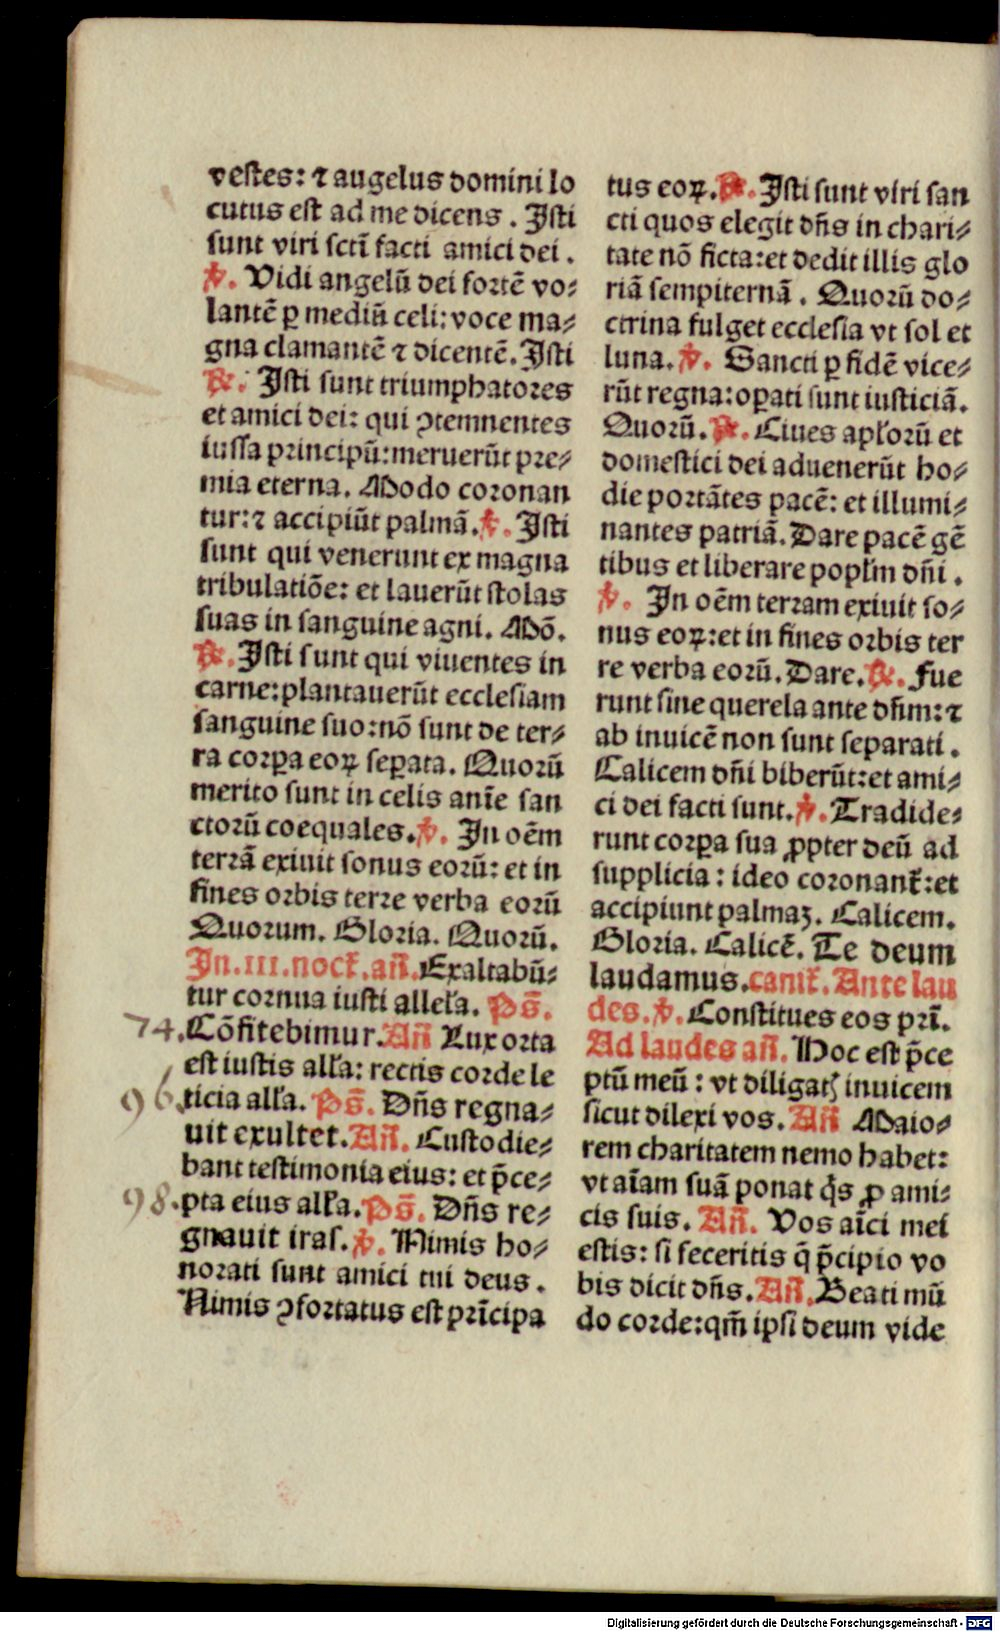 vestes: ⁊ augelus domini lo
cutus est ad me dicens . Isti
sunt viri sctī facti amici dei .
℣. Vidi angelū dei fortē vo-
lantē ꝑ mediū celi: voce ma-
gna clamantē ⁊ dicentē. Isti
℟. Isti sunt triumphatores
et amici dei: qui ꝯtemnentes
iussa principū: meruerūt pre-
mia eterna. Modo coronan
tur: ⁊ accipiūt palmā. ℣. Isti
sunt qui venerunt ex magna
tribulatiōe: et lauerūt stolas
suas in sanguine agni. Mō.
℟. Isti sunt qui viuentes in
carne: plantauerūt ecclesiam
sanguine suo: nō sunt de ter-
ra corꝑa eoꝝ seꝑata. Quorū
merito sunt in celis ante san
ctorū coequales. ℣. In oēm
terrā exiuit sonus eorū: et in
fines orbis terre verba eorū
Quorum. Gloria. Quorū.
In .III. noct̄. an̄. Exaltabū-
tur cornua iusti allel'a. Ps̄.
74. Cōfitebimur. An̄ Lux orta
est iustis all'a: rectis corde le
96. ticia all'a. Ps̄. Dn̄s regna-
uit exultet. An̄. Custodie-
bant testimonia eius: et p̄ce-
98. pta eius all'a. Ps̄. Dn̄s re-
gnauit iras. ℣. Nimis ho-
norati sunt amici tui deus .
Nimis ꝯfortatus est prīcipa
tus eoꝝ. ℟. Isti sunt viri san
cti quos elegit dn̄s in chari-
tate nō ficta: et dedit illis glo
riā sempiternā . Quorū do-
ctrina fulget ecclesia vt sol et
luna. ℣. Sancti ꝑ fidē vice-
rūt regna: oꝑati sunt iusticiā.
Quorū. ℟. Ciues apl'orū et
domestici dei aduenerūt ho-
die portātes pacē: et illumi-
nantes patriā. Dare pacē gē
tibus et liberare popl'm dn̄i .
℣. In oēm terram exiuit so-
nus eoꝝ: et in fines orbis ter
re verba eorū. Dare. ℟. Fue
runt sine querela ante dn̄m: ⁊
ab inuicē non sunt separati .
Calicem dn̄i biberūt: et ami-
ci dei facti sunt. ℣. Tradide-
runt corꝑa sua ꝓpter deū ad
supplicia: ideo coronant̄: et
accipiunt palmaꝫ. Calicem.
Gloria. Calicē. Te deum
laudamus. canit̄. Ante lau
des. ℣. Constitues eos prī.
Ad laudes an̄. Hoc est p̄ce
ptū meū : vt diligatꝭ inuicem
sicut dilexi vos. An̄ Maio-
rem charitatem nemo habet:
vt aīam suā ponat qͥs ꝓ ami-
cis suis. An̄. Vos aīci mei
estis: si feceritis q̄ p̄cipio vo
bis dicit dn̄s. An̄. Beati mū
do corde: qm̄ ipsi deum vide
Digitalisierung gefördert durch die Deutsche Forschungsgemeinschaft - DFG